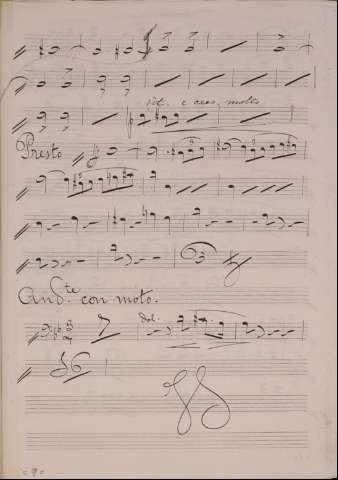 rit. e cres. molto
Presto
63
And.te con moto.
7 dol.
56
9